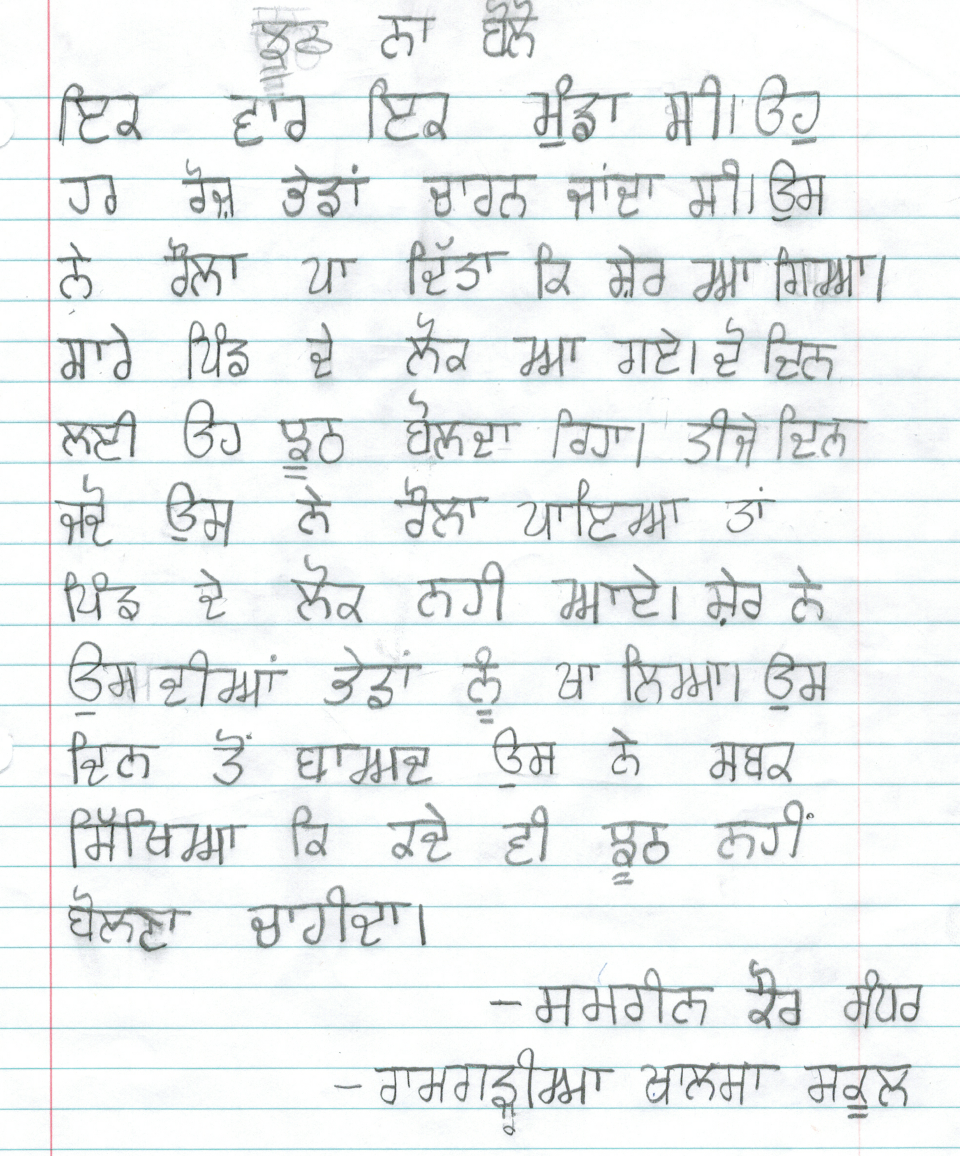 ਝੂਠ ਨਾ ਬੋਲੋ
ਇਕ ਵਾਰ ਇਕ ਮੁੰਡਾ ਸੀ। ਉਹ
ਹਰ ਰੋਜ਼ ਭੇਡਾਂ ਚਾਰਨ ਜਾਂਦਾ ਸੀ। ਉਸ
ਨੇ ਰੌਲਾ ਪਾ ਦਿੱਤਾ ਕਿ ਸ਼ੇਰ ਆ ਗਿਆ।
ਸਾਰੇ ਪਿੰਡ ਦੇ ਲੋਕ ਆ ਗਏ। ਦੋ ਦਿਨ
ਲਈ ਉਹ ਝੂਠ ਬੋਲਦਾ ਰਿਹਾ। ਤੀਜੇ ਦਿਨ
ਜਦੋ ਉਸ ਨੇ ਰੌਲਾ ਪਾਇਆ ਤਾਂ
ਪਿੰਡ ਦੇ ਲੋਕ ਨਹੀ ਆਏ। ਸ਼ੇਰ ਨੇ
ਉਸ ਦੀਆਂ ਭੇਡਾਂ ਨੂੰ ਖਾ ਲਿਆ। ਉਸ
ਦਿਨ ਤੋਂ ਬਾਅਦ ਉਸ ਨੇ ਸਬਕ
ਸਿੱਖਿਆ ਕਿ ਕਦੇ ਵੀ ਝੂਠ ਨਹੀਂ
ਬੋਲਣਾ ਚਾਹੀਦਾ।
- ਸਮਰੀਨ ਕੌਰ ਸੰਧਰ
- ਰਾਮਗੜ੍ਹੀਆ ਖਾਲਸਾ ਸਕੂਲ